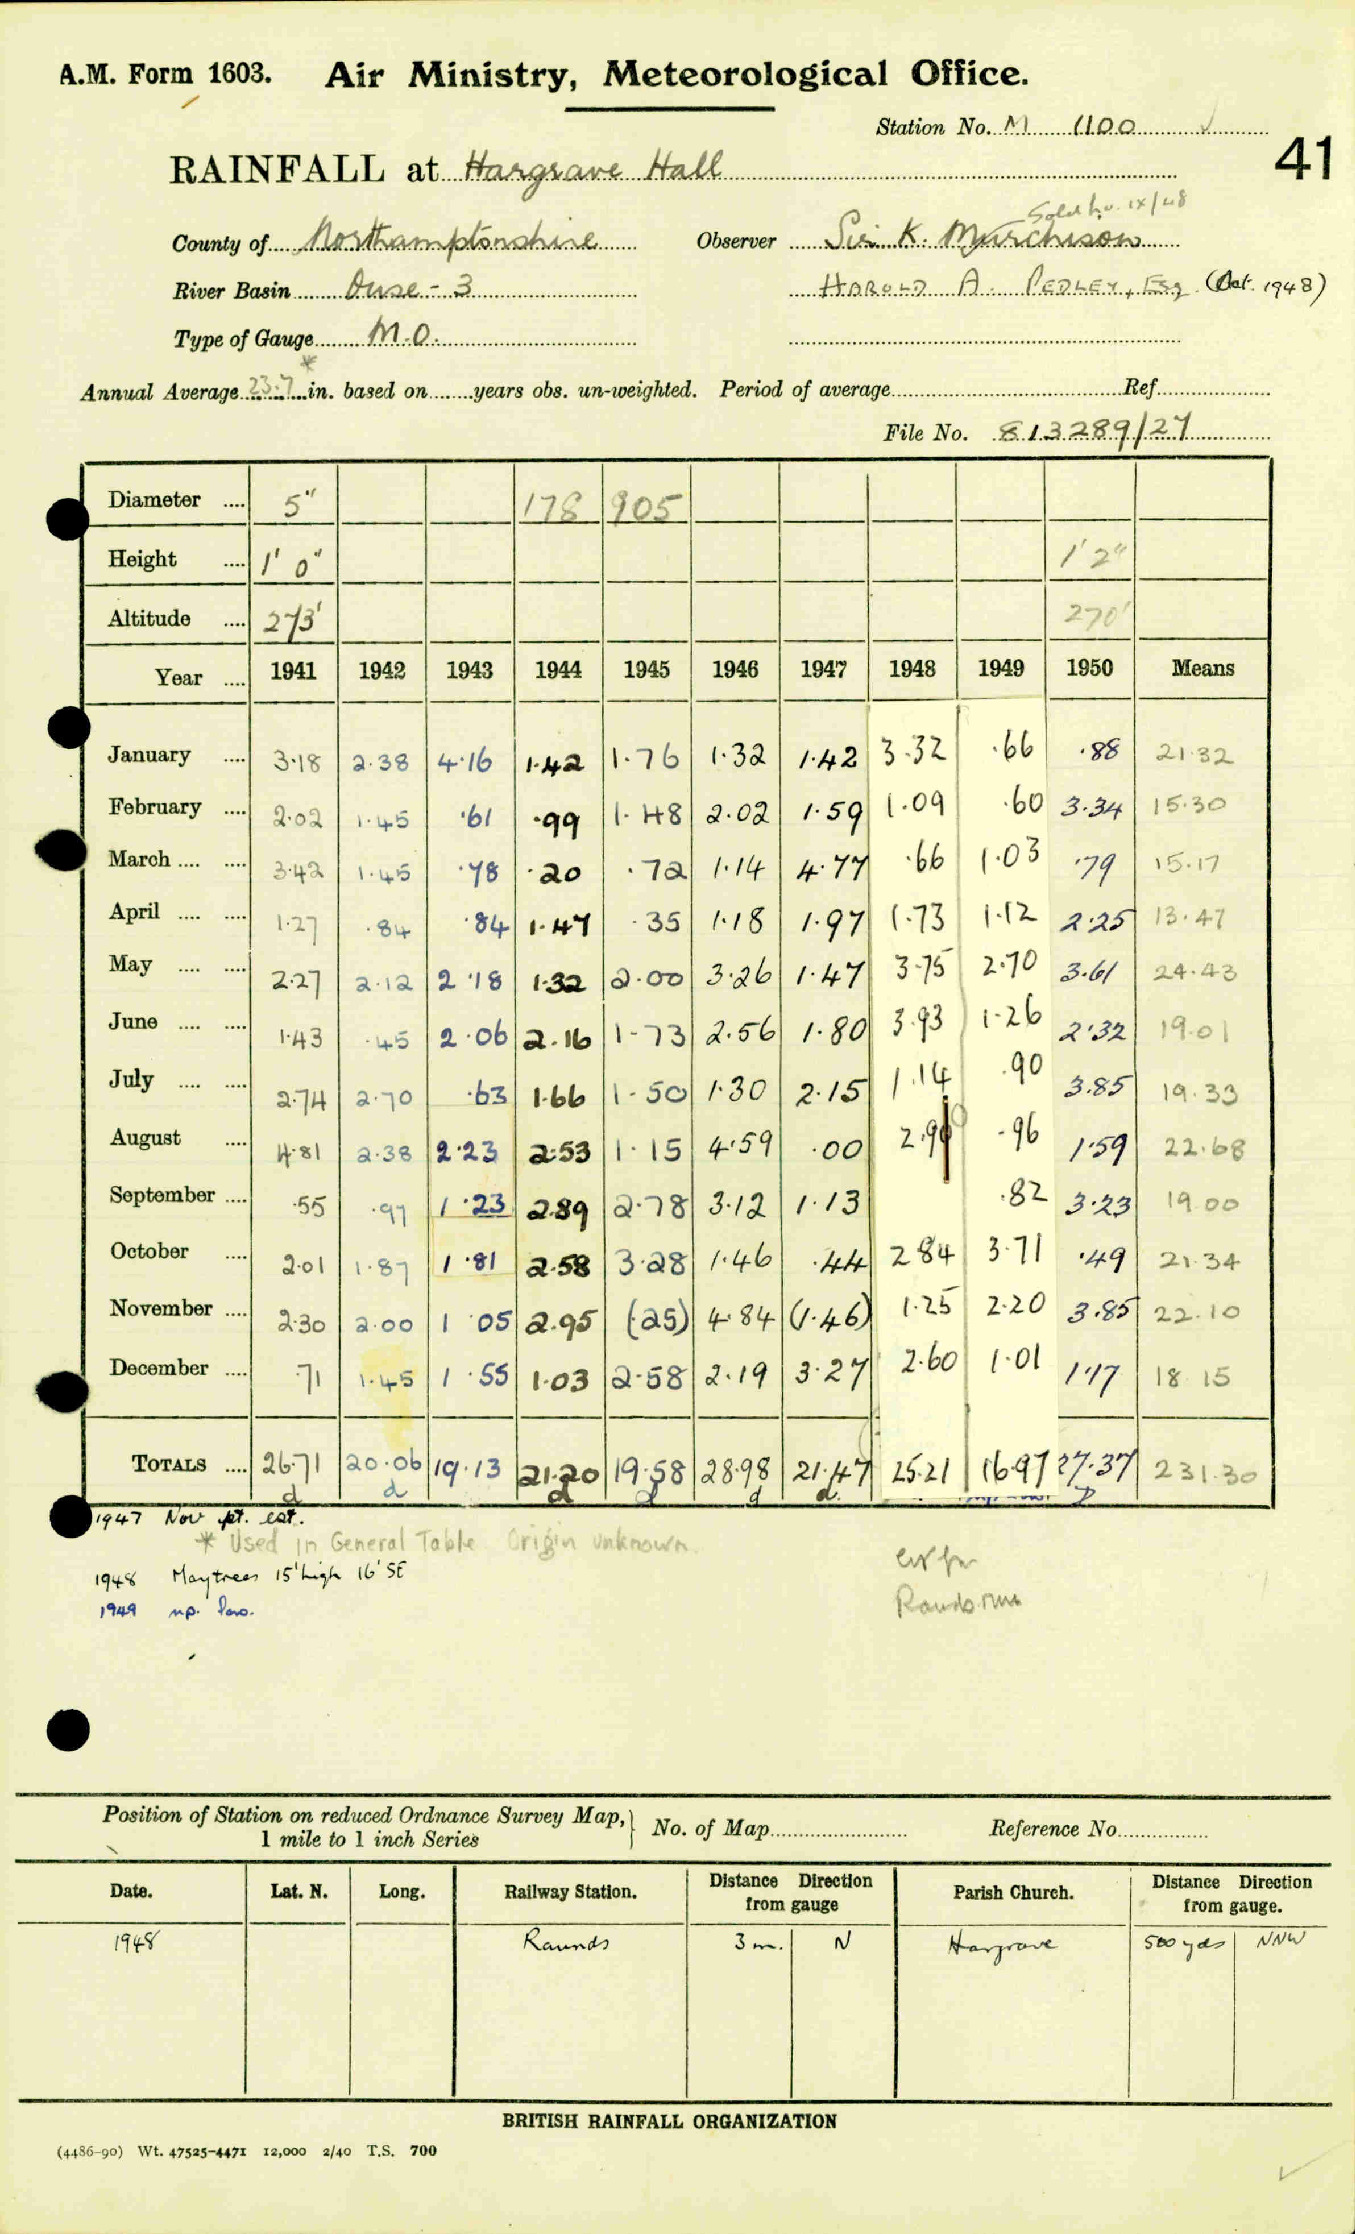 A.M. Form 1603. Air Ministry, Meteorological Office.
Station No. M 1100 ✓
41
RAINFALL at Hargrave Hall
IX/48
County of Northamptonshire Observer Sir K. Murchison
River Basin Ouse - 3 HAROLD A. PEDLEY, Esq. (Oct. 1948)
Type of Gauge M.O.
Annual Average 23.7* in. based on years obs. un-weighted. Period of average Ref.
File No. 813289/27
Diameter 5" 178 905
Height 1' 0" 1' 2"
Altitude 273' 270'
Year 1941 1942 1943 1944 1945 1946 1947 1948 1949 1950 Means
January 3.18 2.38 4.16 1.42 1.76 1.32 1.42 3.32 .66 .88 21.32
February 2.02 1.45 .61 .99 1.48 2.02 1.59 1.09 .60 3.34 15.30
March 3.42 1.45 .78 .20 .72 1.14 4.77 .66 1.03 .79 15.17
April 1.27 .84 .84 1.47 .35 1.18 1.97 1.73 1.12 2.25 13.47
May 2.27 2.12 2.18 1.32 2.00 3.26 1.47 3.75 2.70 3.61 24.43
June 1.43 .45 2.06 2.16 1.73 2.56 1.80 3.93 1.26 2.32 19.01
July 2.74 2.70 .63 1.66 1.50 1.30 2.15 1.14 .90 3.85 19.33
August 4.81 2.38 2.23 2.53 1.15 4.59 .00 2.90 .96 1.59 22.68
September .55 .97 1.23 2.89 2.78 3.12 1.13 .82 3.23 19.00
October 2.01 1.87 1.81 2.58 3.28 1.46 .44 2.84 3.71 .49 21.34
November 2.30 2.00 1 05 2.95 (.25) 4.84 (1.46) 1.25 2.20 3.85 22.10
December .71 1.45 1.55 1.03 2.58 2.19 3.27 2.60 1.01 1.17 18 15
TOTALS 26.71 20.06 19.13 21.20 19.58 28.98 21.47 25.21 16.97 27.37 231.30
d d d d d d D
1947 Nov pt. est.
* Used in General Table Origin unknown.
1948 Maytrees 15' high 16' SE
1949 n.p.
Position of Station on reduced Ordnance Survey Map, 1 mile to 1 inch Series No. of Map Reference No.
Date. Lat. N. Long. Railway Station. Distance Direction from gauge Parish Church. Distance Direction from gauge.
1948 Raunds 3 m. N Hargrave 500 yds NNW
BRITISH RAINFALL ORGANIZATION
(4486-90) Wt. 47525-4471 12,000 2/40 T.S. 700